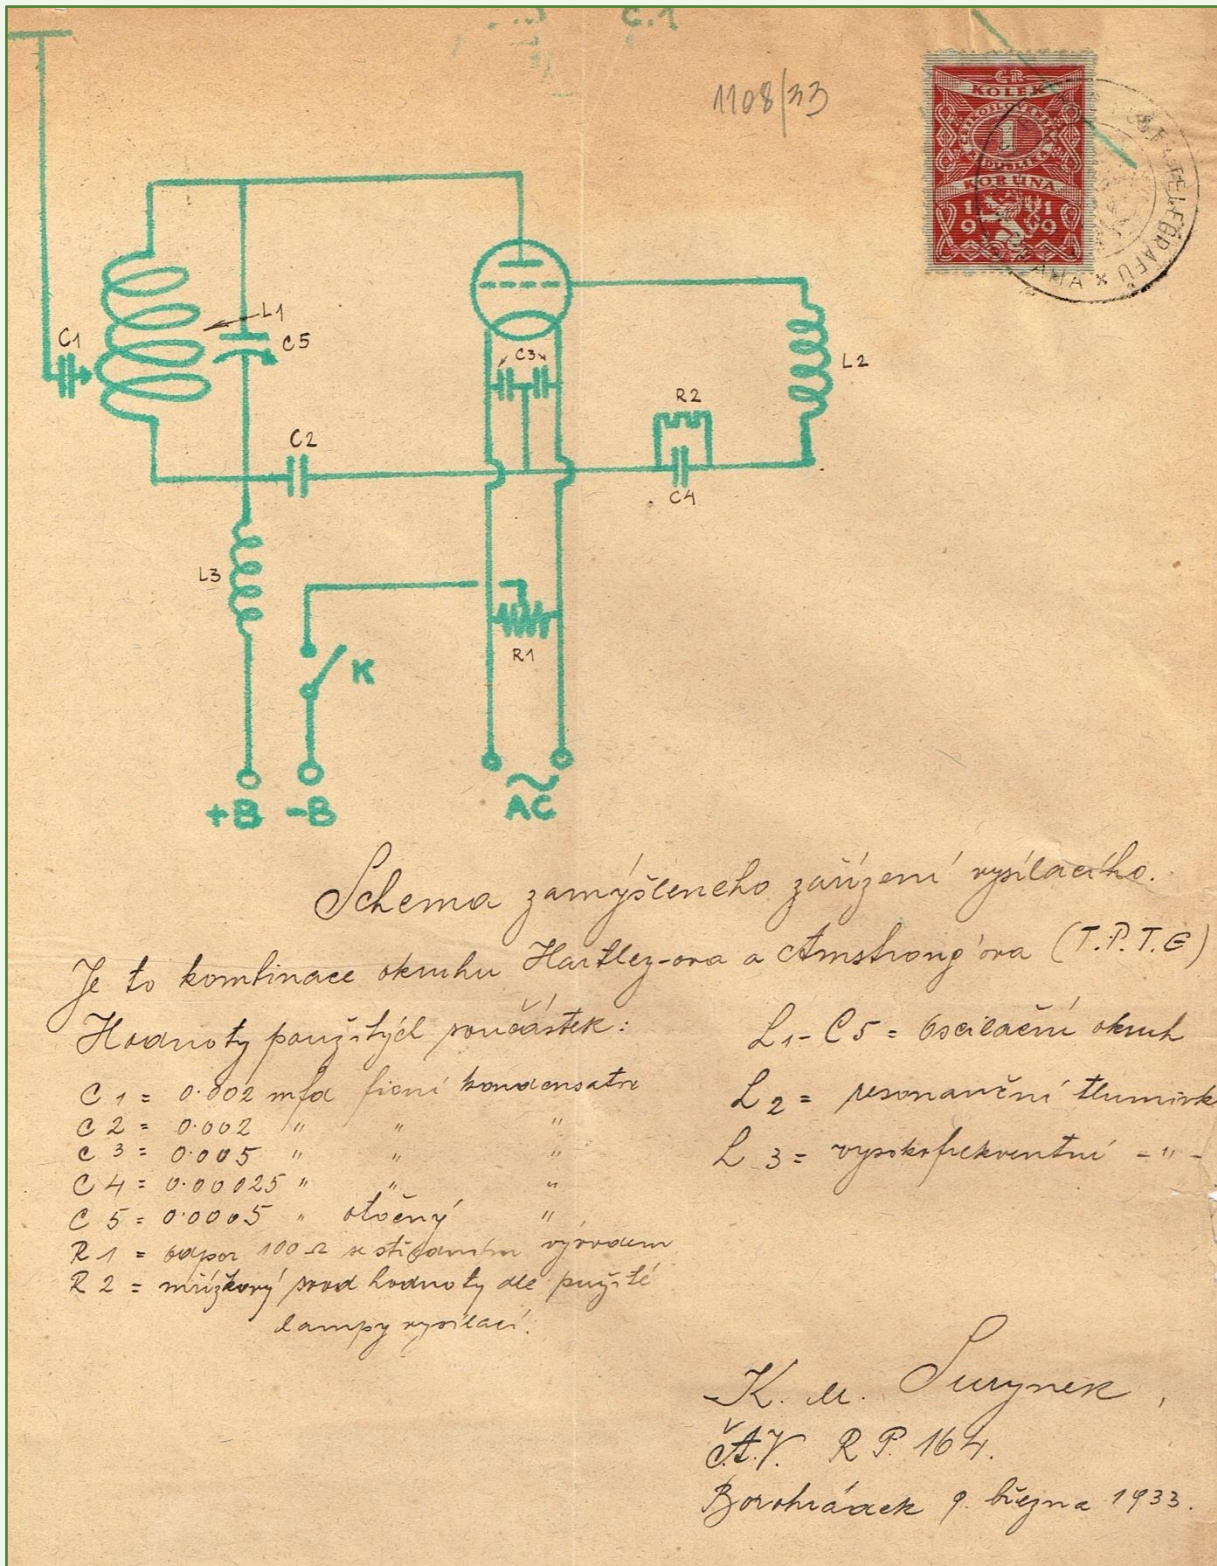 C.1
1108/33
ČR
KOLEK
1
KORUNA
19 19
TELEGRAFŮ
L1
C1
C5
C3
L2
R2
C2
C4
L3
R1
K
+B -B
AC
Schema zamýšleneho zařízení vysílacího.
Je to kombinace okruhu Hartley-ova a Amstrong'ova (T.P.T.G)
Hodnoty použitých součástek:
C 1 = 0.002 mfd fixní kondensátor
C 2 = 0.002 " " "
C 3 = 0.005 " " "
C 4 = 0.00025 " " "
C 5 = 0.0005 " otočný "
R 1 = odpor 100 Ω se středním vývodem
R 2 = mřížkový svod hodnoty dle použité
lampy vysílací.
L1 - C5 = oscilační okruh
L2 = resonanční tlumivk
L 3 = vysokofrekventní - " -
K. M. Surynek,
Č.A.V. R P. 164.
Borohrádek 9. března 1933.